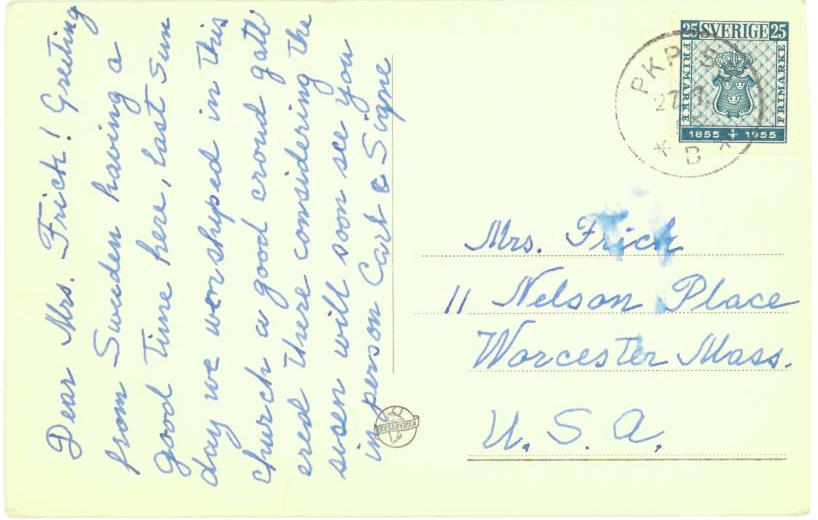 Dear Mrs. Frick! Greeting
from Sweden having a
good time here, last Sun
day we worshiped in this
church a good croud gath
ered there considering the
sisen will soon see you
in person Carl & Signe
25 SVERIGE 25
FRIMÄRKE
FRIMÄRKE
1855 1955
PKP
27
* B *
Mrs. Frick
11 Nelson Place
Worcester Mass.
U.S.A.